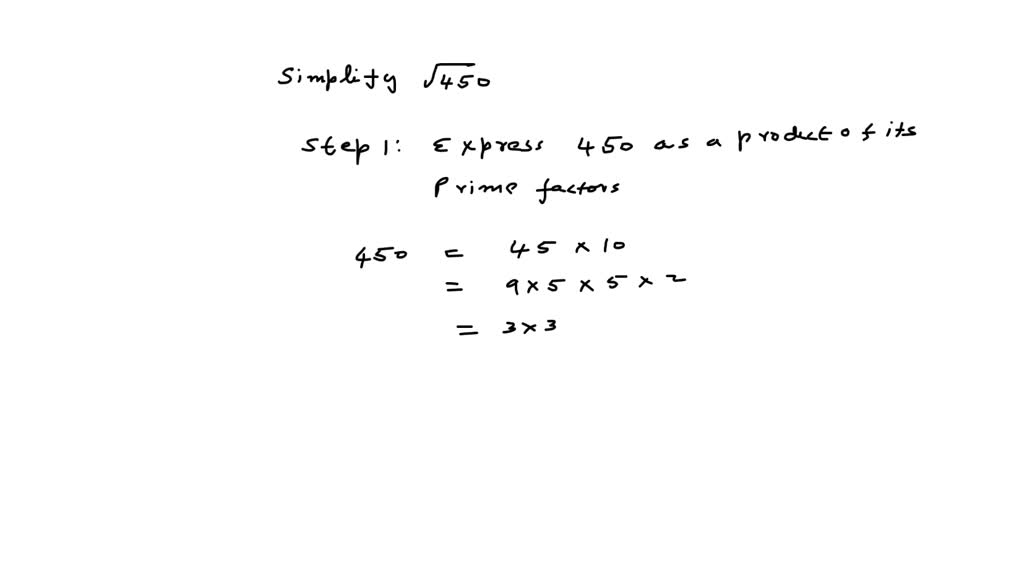 Simplify √450
Step 1: Express 450 as a product of its
Prime factors
450 = 45 × 10
= 9 × 5 × 5 × 2
= 3 × 3